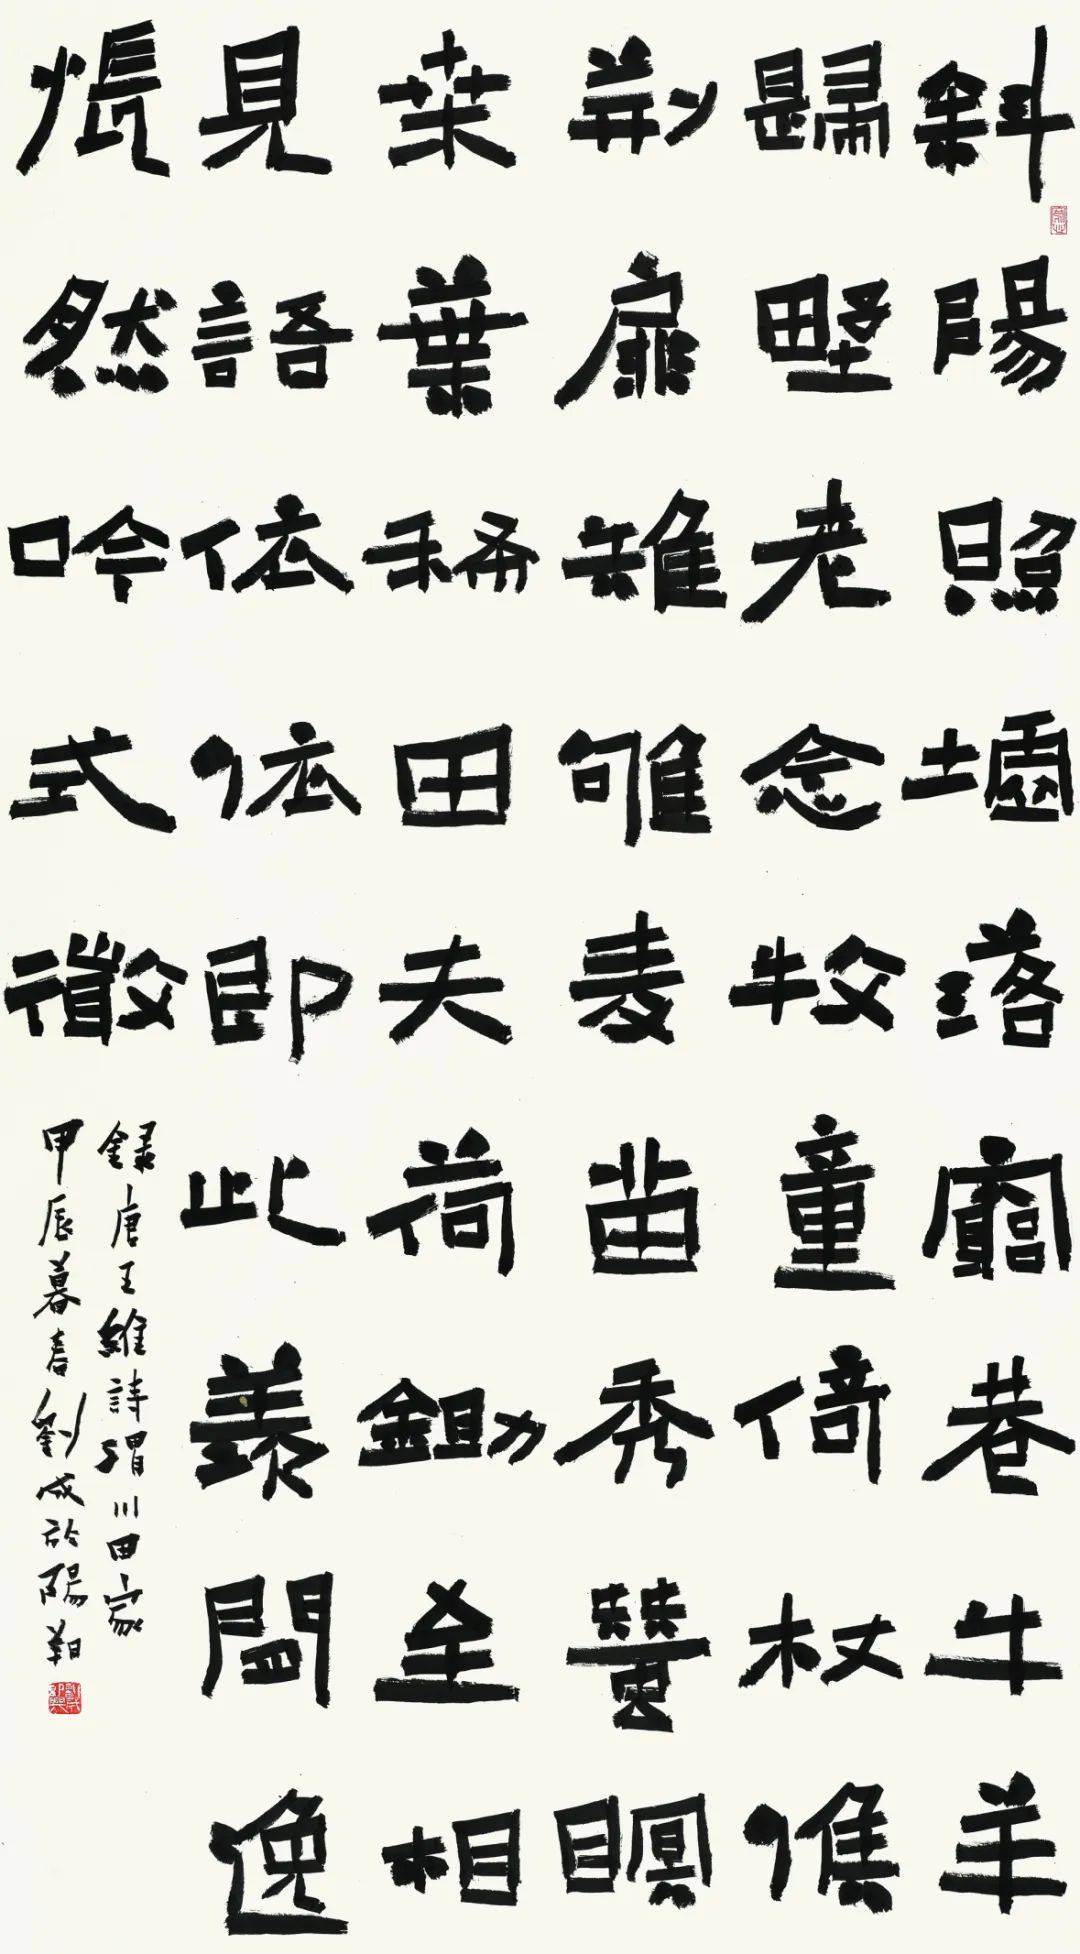 斜陽照墟落窮巷牛羊
歸野老念牧童倚杖候
荊扉雉雊麦苗秀蠶瞑
桒葉稀田夫荷鋤至相
見語依依即此羨閒逸
悵然吟式微
錄唐王維詩渭川田家
甲辰暮春劉成於陽